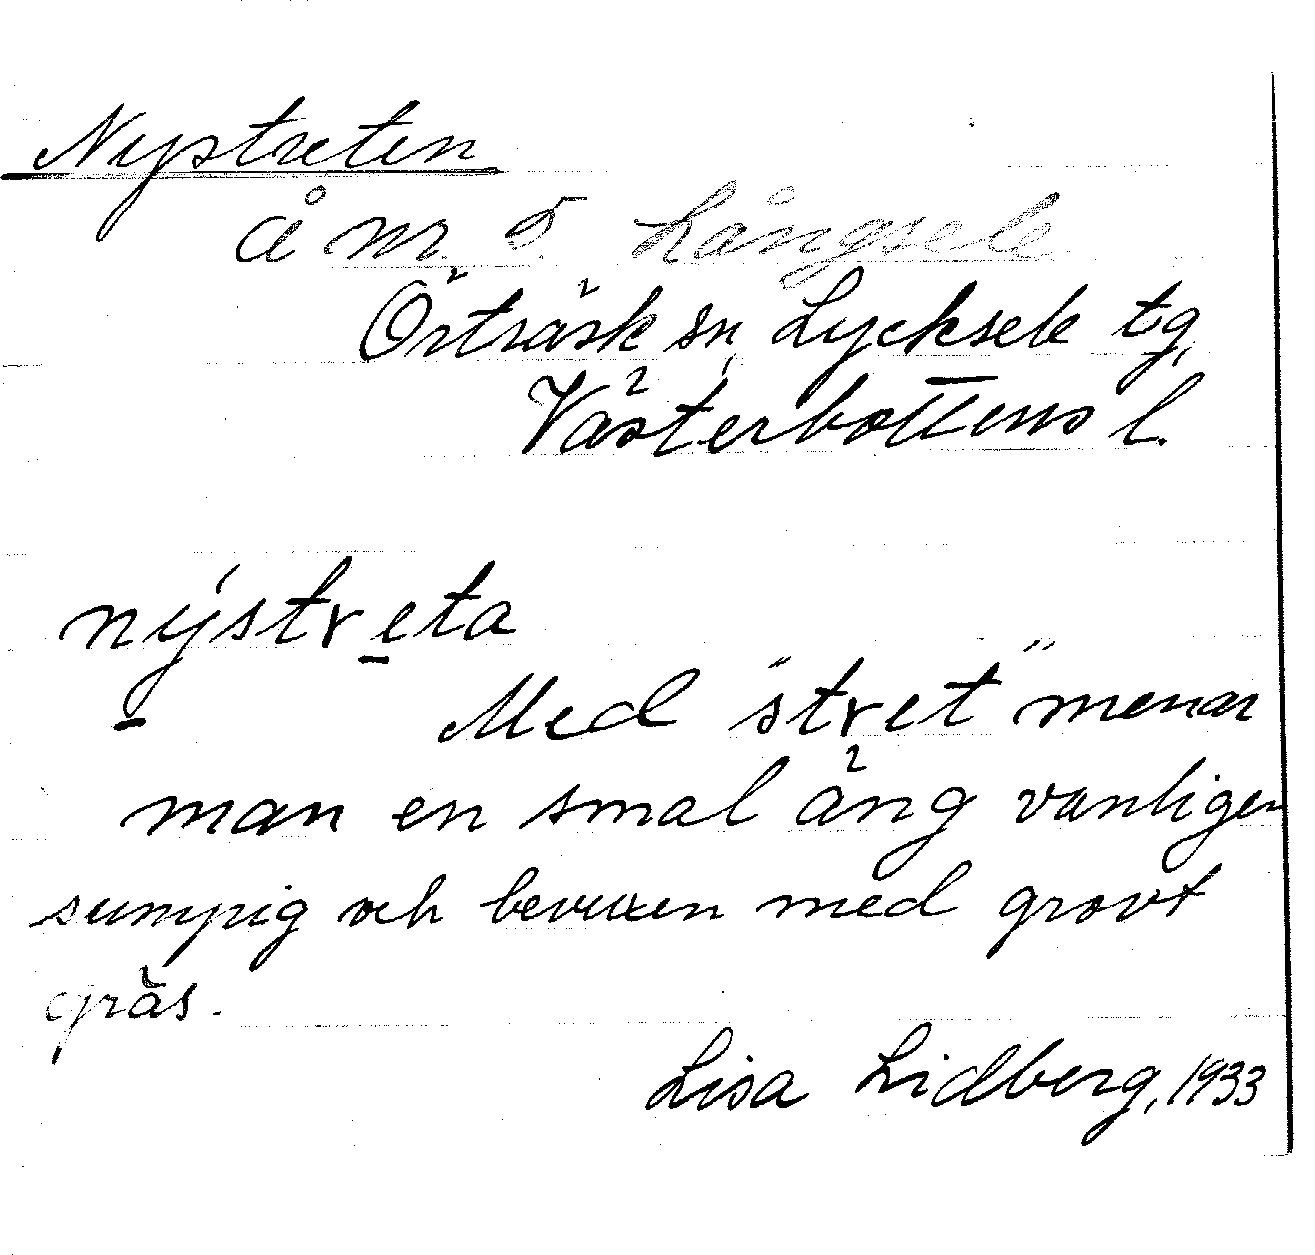 Nystreten
å nr. 5 Långsele
Örträsk sn, Lycksele tg,
Västerbottens l.
nýstreta
Med "stret" menar
man en smal äng vanligen
sumpig och bevuxen med grovt
gräs.
Lisa Lidberg, 1933